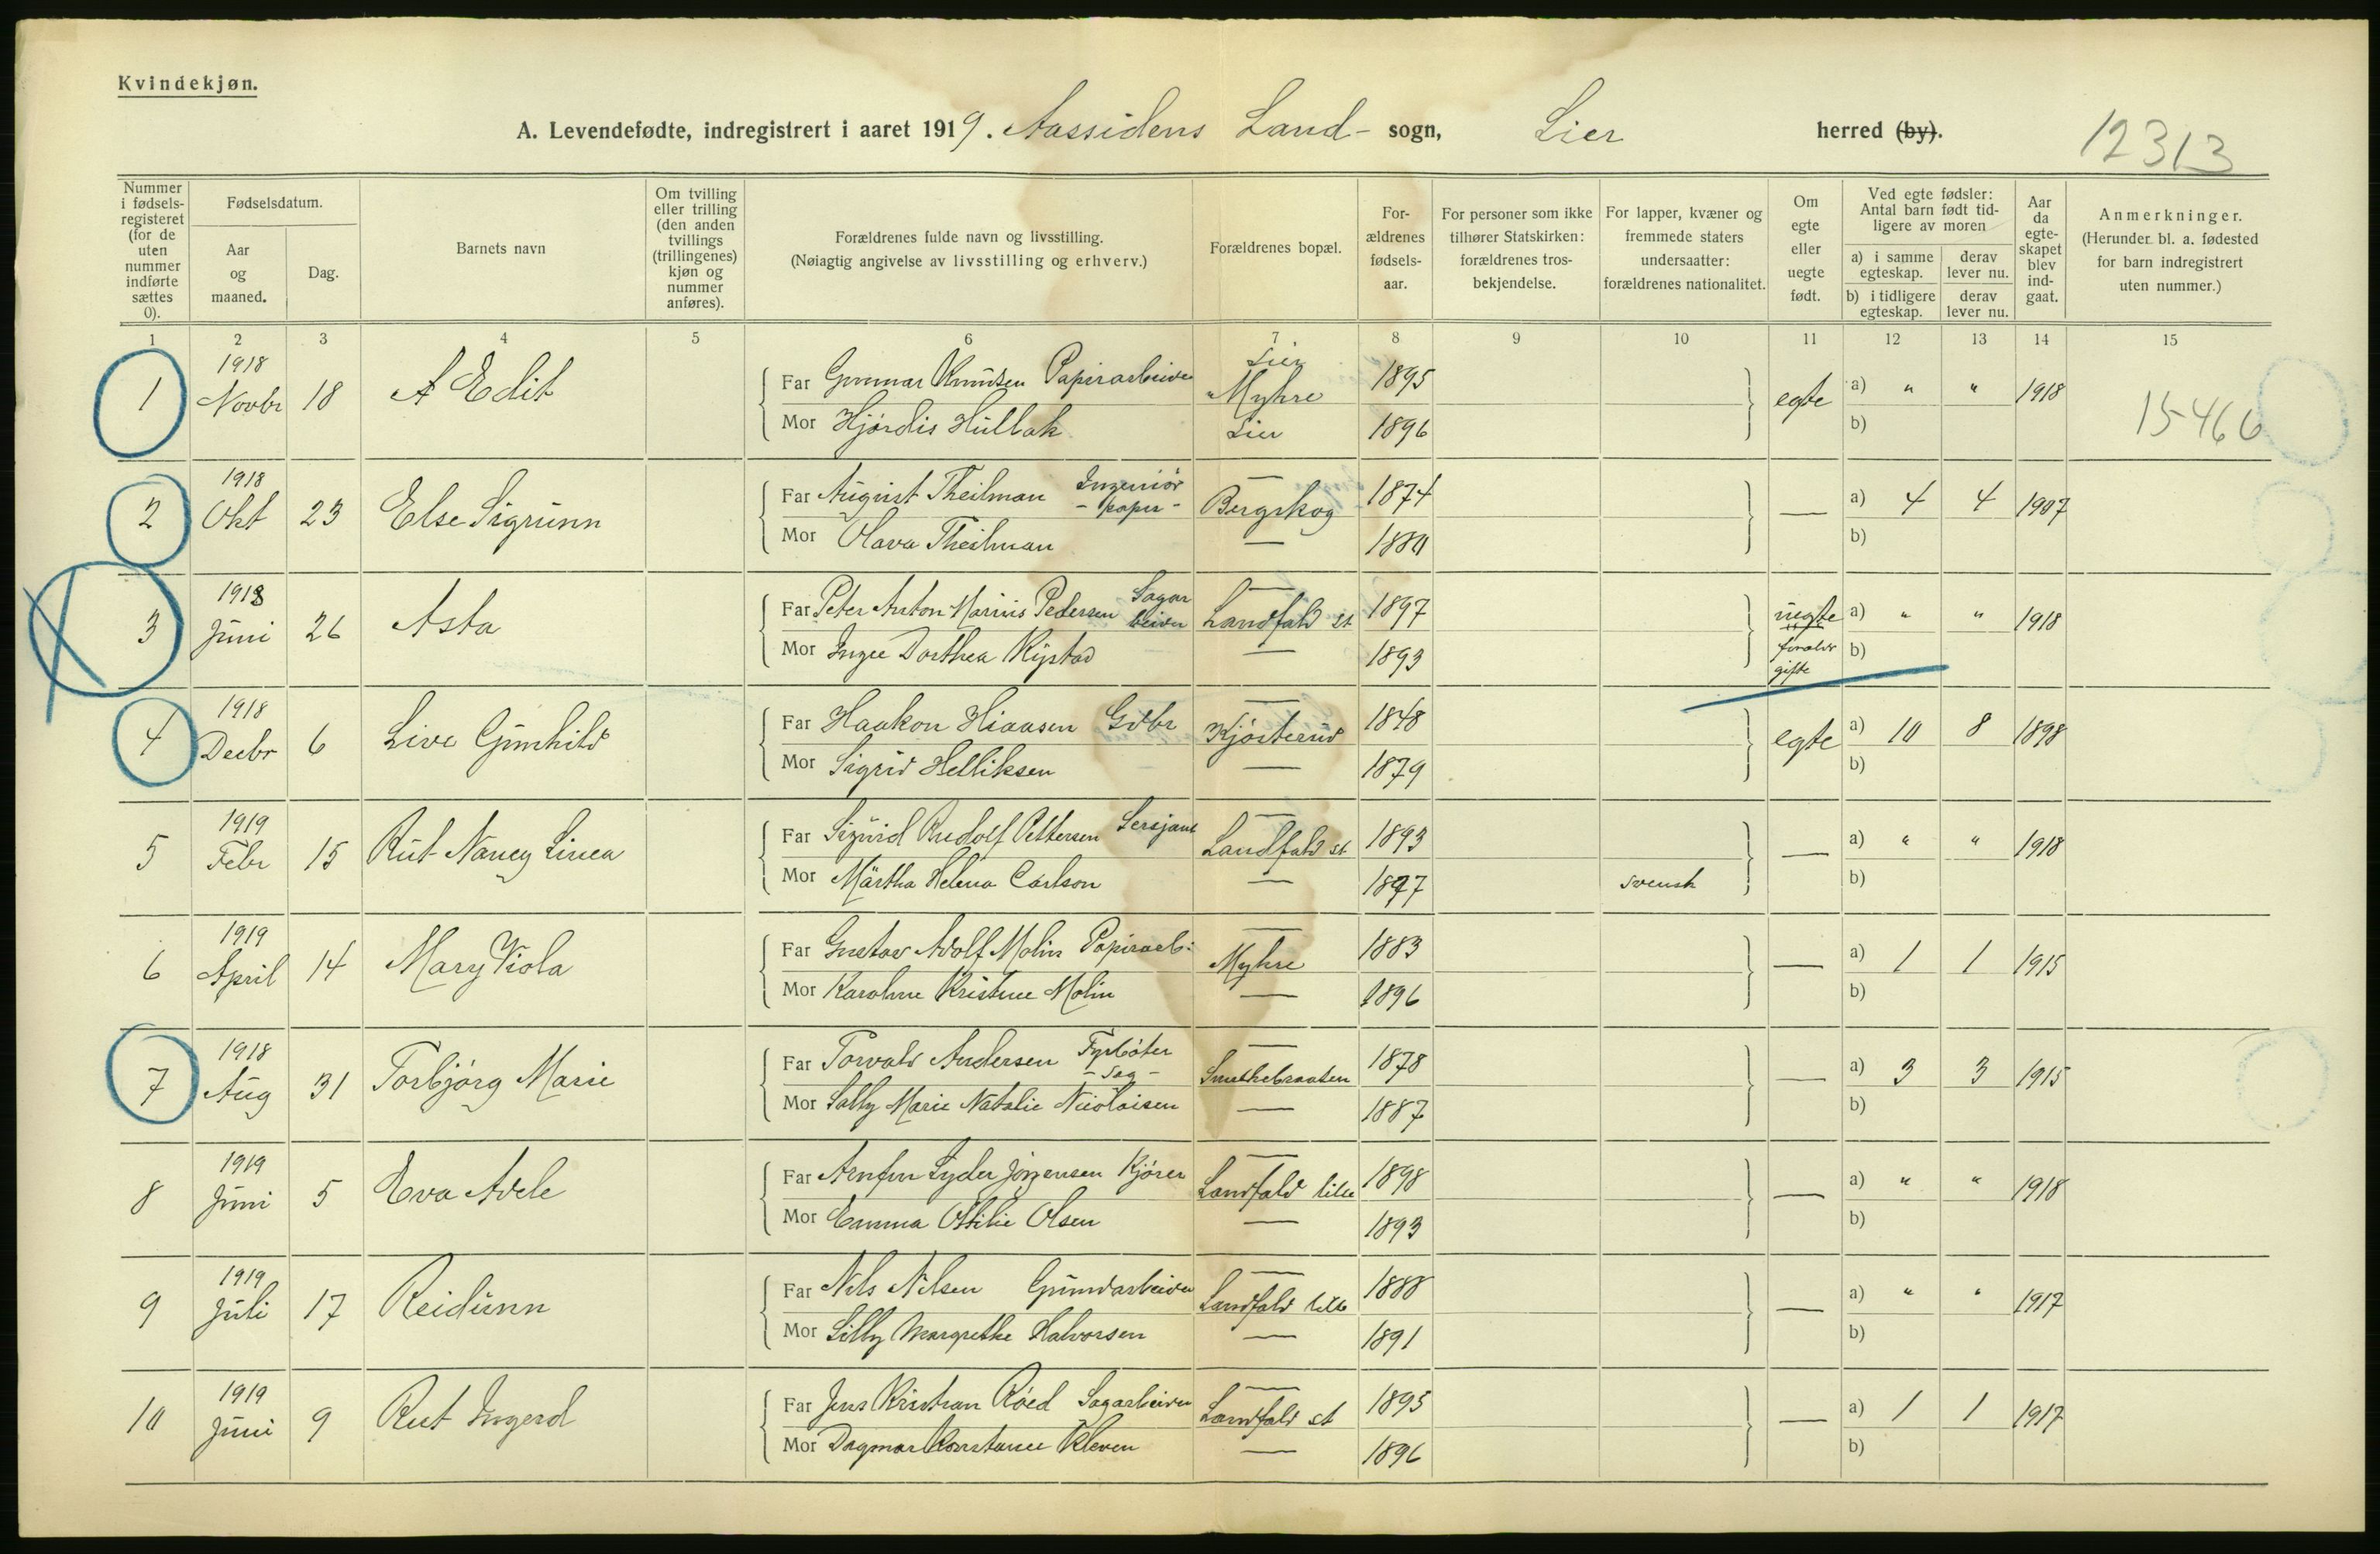 Kvindekjøn.
A. Levendefødte, indregistrert i aaret 1919. Aassidens Land- sogn, Lier herred (by).
12313
Nummer i fødselsregisteret (for de uten nummer indførte sættes 0).
Fødselsdatum.
Aar og maaned.
Dag.
Barnets navn
Om tvilling eller trilling (den anden tvillings (trillingenes) kjøn og nummer anføres).
Forældrenes fulde navn og livsstilling. (Nøiagtig angivelse av livsstilling og erhverv.)
Forældrenes bopæl.
For-ældrenes fødsels-aar.
For personer som ikke tilhører Statskirken: forældrenes tros-bekjendelse.
For lapper, kvæner og fremmede staters undersaatter: forældrenes nationalitet.
Om egte eller uegte født.
Ved egte fødsler: Antal barn født tid-ligere av moren
a) i samme egteskap. derav lever nu.
b) i tidligere egteskap. derav lever nu.
Aar da egte-skapet blev ind-gaat.
Anmerkninger. (Herunder bl. a. fødested for barn indregistrert uten nummer.)
1 2 3 4 5 6 7 8 9 10 11 12 13 14 15
1 1918 Novbr 18 A Edit Far Gunnar Knudsen Papirarbeider Lier Myhre 1895 egte a) " " 1918 15466
Mor Hjørdis Hullak Lier 1896 b)
2 1918 Okt 23 Else Sigrunn Far August Theilman Ingeniør - papir - — Bergskog 1874 — a) 4 4 1907
Mor Olava Theilman — 1880 b)
3 1918 Juni 26 Asta Far Peter Anton Marius Pedersen Sagarbeider — Landfald st 1897 uegte a) " " 1918
Mor Inga Dorthea Kystad — 1893 foraldr gifte b)
4 1918 Decbr 6 Live Gunhild Far Haakon Hiaasen Gdbr — Kjøsterud 1848 egte a) 10 8 1898
Mor Sigrid Helliksen — 1879 b)
5 1919 Febr 15 Rut Nancy Linea Far Sigurd Rudolf Pettersen Sersjant — Landfald st 1893 — a) " " 1918
Mor Märtha Helena Carlson — 1897 svensk b)
6 1919 April 14 Mary Viola Far Gustav Adolf Molin Papirarb: — Myhre 1883 — a) 1 1 1915
Mor Karoline Kristine Molin — 1896 b)
7 1918 Aug 31 Torbjørg Marie Far Torvald Andersen Fyrbøter - Sag - — Smithebraaten 1878 — a) 3 3 1915
Mor Sally Marie Natalie Nicolaisen — 1887 b)
8 1919 Juni 5 Eva Adele Far Arnfin Lyder Jørgensen Kjører — Landfald lille 1898 — a) " " 1918
Mor Emma Ottilie Olsen — 1893 b)
9 1919 Juli 17 Reidunn Far Nils Nilsen Grundarbeider — Landfald lille 1888 — a) " " 1917
Mor Lilly Margrethe Halvorsen — 1891 b)
10 1919 Juni 9 Rut Ingerd Far Jens Kristian Røed Sagarbeider — Landfald st 1895 — a) 1 1 1917
Mor Dagmar Konstance Kleven — 1896 b)